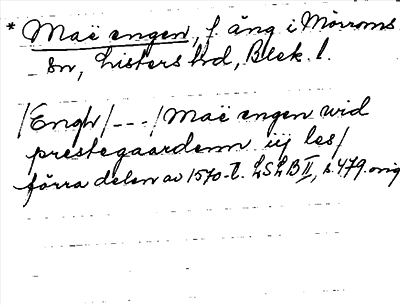 * Maë engen, f. äng i Mörrums
sn, Listers hd, Blek. l.
/Engh/ --- / Maë engen wid
prestegaardenn iij les/
förra delen av 1570-t. LSLB II, s. 479. orig